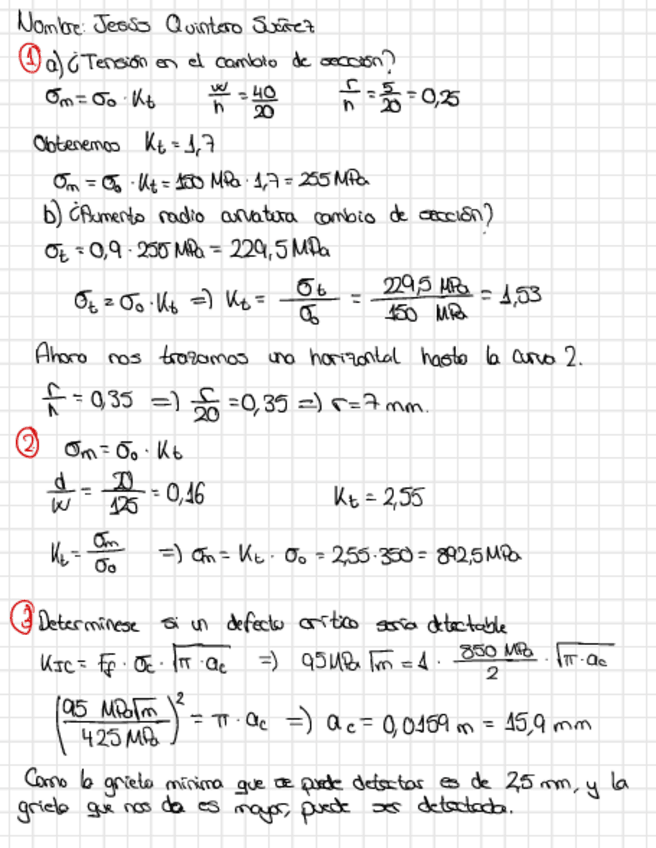 Nombre: Jesús Quintero Suárez
① a) ¿Tensión en el cambio de sección?
σm = σ₀ · Kt   w/h = 40/20   r/h = 5/20 = 0,25
Obtenemos Kt = 1,7
σm = σ₀ · Kt = 150 MPa · 1,7 = 255 MPa
b) ¿Aumento radio curvatura cambio de sección?
σt = 0,9 · 250 MPa = 229,5 MPa
σt = σ₀ · Kt => Kt = σt/σ₀ = 229,5 MPa/150 MPa = 1,53
Ahora nos trazamos una horizontal hasta la curva 2.
r/h = 0,35 => r/20 = 0,35 => r = 7 mm.
② σm = σ₀ · Kt
d/w = 20/125 = 0,16   Kt = 2,55
Kt = σm/σ₀ => σm = Kt · σ₀ = 2,55 · 350 = 892,5 MPa
③ Determínese si un defecto crítico sería detectable
KIC = Fg · σc · √(π · ac) => 95 MPa √m = 1 · 850 MPa/2 · √(π · ac)
(95 MPa√m/425 MPa)² = π · ac => ac = 0,0159 m = 15,9 mm
Como la grieta mínima que se puede detectar es de 2,5 mm, y la
grieta que nos da es mayor, puede ser detectada.